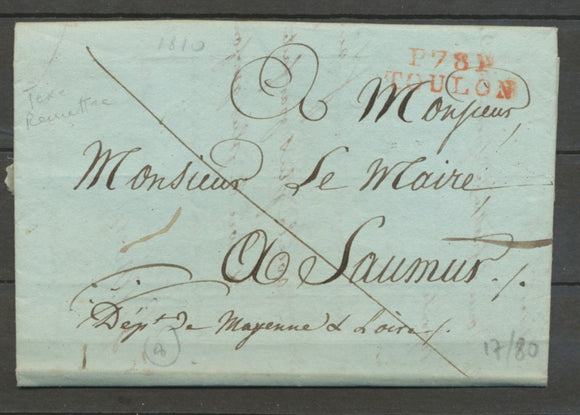 1810
P78P
TOULON
Texe
Remettre
A Monsieur
Monsieur Le Maire
A Saumur
Dépt de Mayenne & Loire
17/80